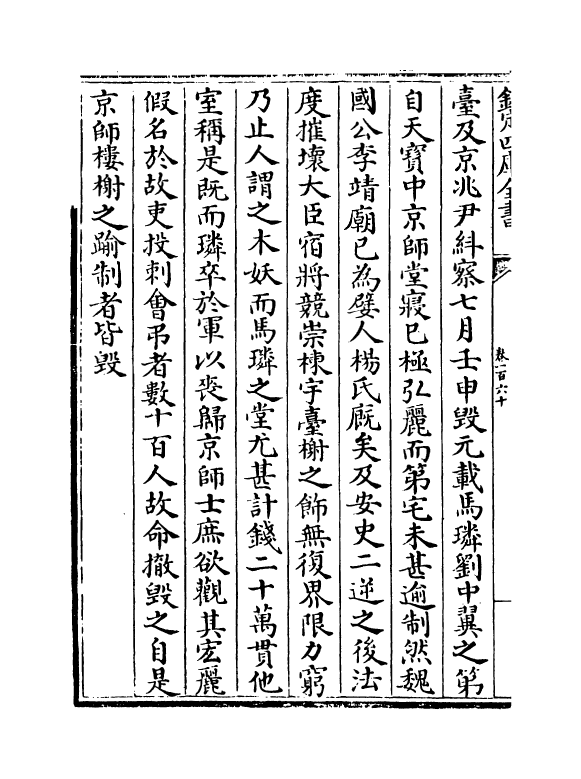 欽定四庫全書
卷一百六十
臺及京兆尹糾察七月壬申毀元載馬璘劉中翼之第
自天寳中京師堂寢已極弘麗而第宅未甚逾制然魏
國公李靖廟已為嬖人楊氏廐矣及安史二逆之後法
度摧壞大臣宿將競崇棟宇臺榭之飾無復界限力窮
乃止人謂之木妖而馬璘之堂尤甚計錢二十萬貫他
室稱是既而璘卒於軍以喪歸京師士庶欲觀其宏麗
假名於故吏投刺會弔者數十百人故命撤毀之自是
京師樓榭之踰制者皆毀